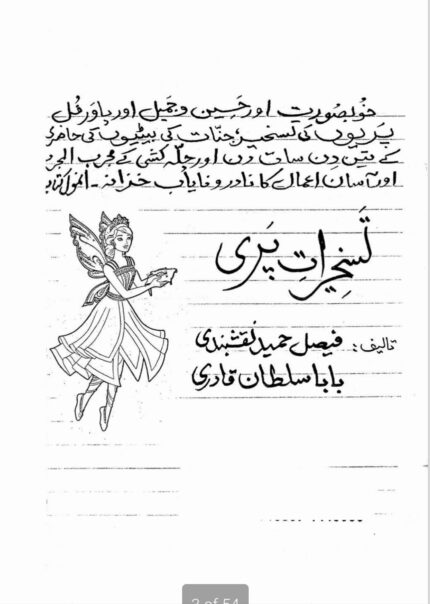 خوبصورت اور حَسِین و جمیل اور پاورفُل
پَریوں کی تسخیر، جنّات کی بیٹیوں کی حاضری
کے تین دِن سات دن اور چلّہ کشی کے مجرب المجر
اور آسان اعمال کا نادر و نایاب خزانہ ۔ انمول کتاب
تَسخِیراتِ پَری
تالیف: فیصل حمید نقشبندی
بابا سلطان قادری
2 of 54